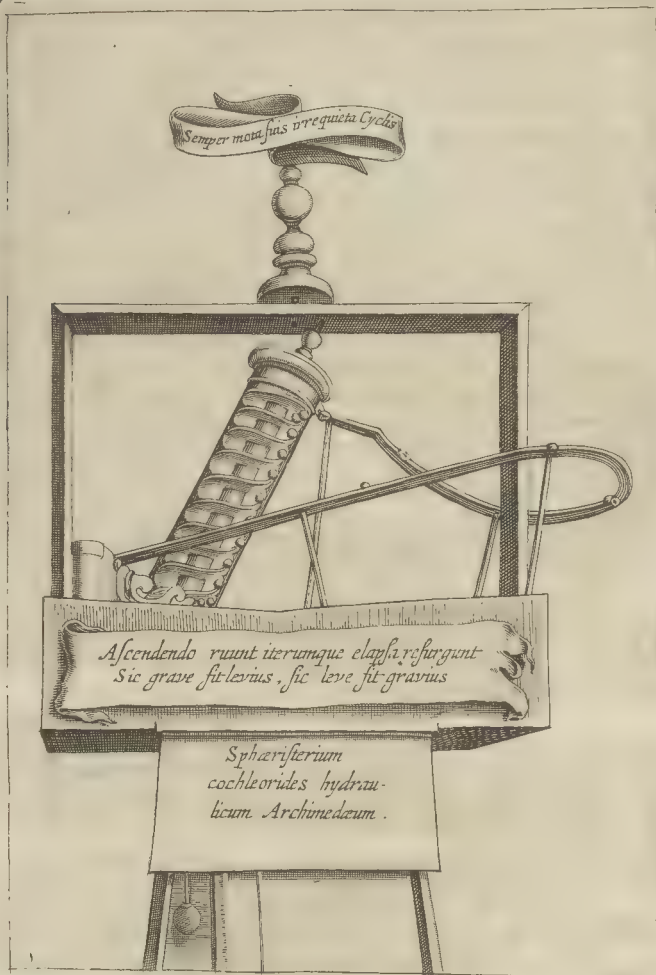 Semper mota suis irrequieta Cyclis
Ascendendo ruunt iterumque elapsa resurgunt
Sic grave fit levius, sic leve fit gravius
Sphæristerium
cochleorides hydrau-
licum Archimedæum.